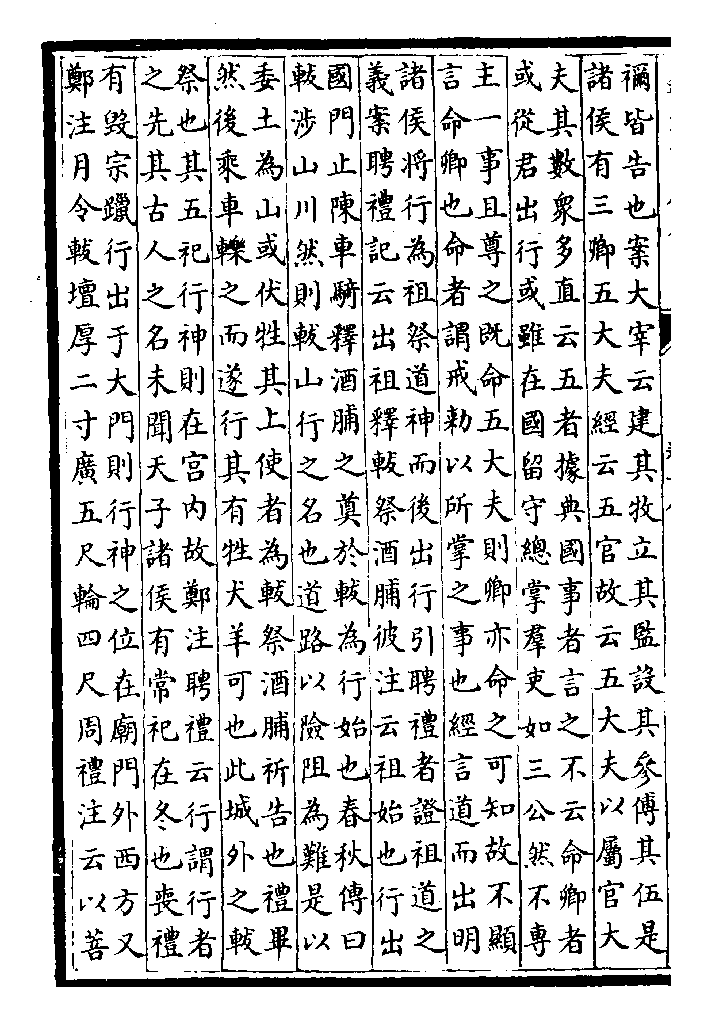 禰皆告也案大宰云建其牧立其監設其參傅其伍是
諸侯有三卿五大夫經云五官故云五大夫以屬官大
夫其數衆多直云五者據典國事者言之不云命卿者
或從君出行或雖在國留守總掌羣吏如三公然不專
主一事且尊之既命五大夫則卿亦命之可知故不顯
言命卿也命者謂戒勅以所掌之事也經言道而出明
諸侯將行為祖祭道神而後出行引聘禮者證祖道之
義案聘禮記云出祖釋軷祭酒脯彼注云祖始也行出
國門止陳車騎釋酒脯之奠於軷為行始也春秋傳曰
軷涉山川然則軷山行之名也道路以險阻為難是以
委土為山或伏牲其上使者為軷祭酒脯祈告也禮畢
然後乘車轢之而遂行其有牲犬羊可也此城外之軷
祭也其五祀行神則在宮內故鄭注聘禮云行謂行者
之先其古人之名未聞天子諸侯有常祀在冬也喪禮
有毀宗躐行出于大門則行神之位在廟門外西方又
鄭注月令軷壇厚二寸廣五尺輪四尺周禮注云以菩